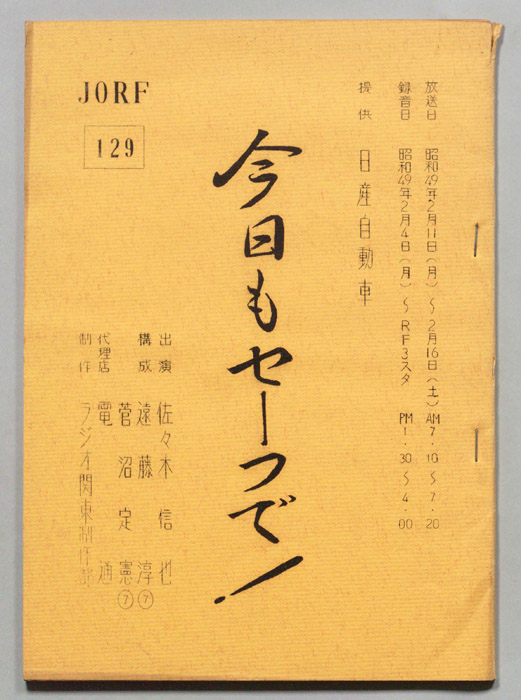 JORF
129
放送日 昭和49年2月11日(月)〜2月16日(土) AM7.10〜7.20
録音日 昭和49年2月4日(月)〜RF3スタ PM1.30〜4.00
提供 日産自動車
今日もセーフで!
出演 佐々木信也
構成 遠藤淳⑦
菅沼定憲⑦
代理店 電通
制作 ラジオ関東制作部